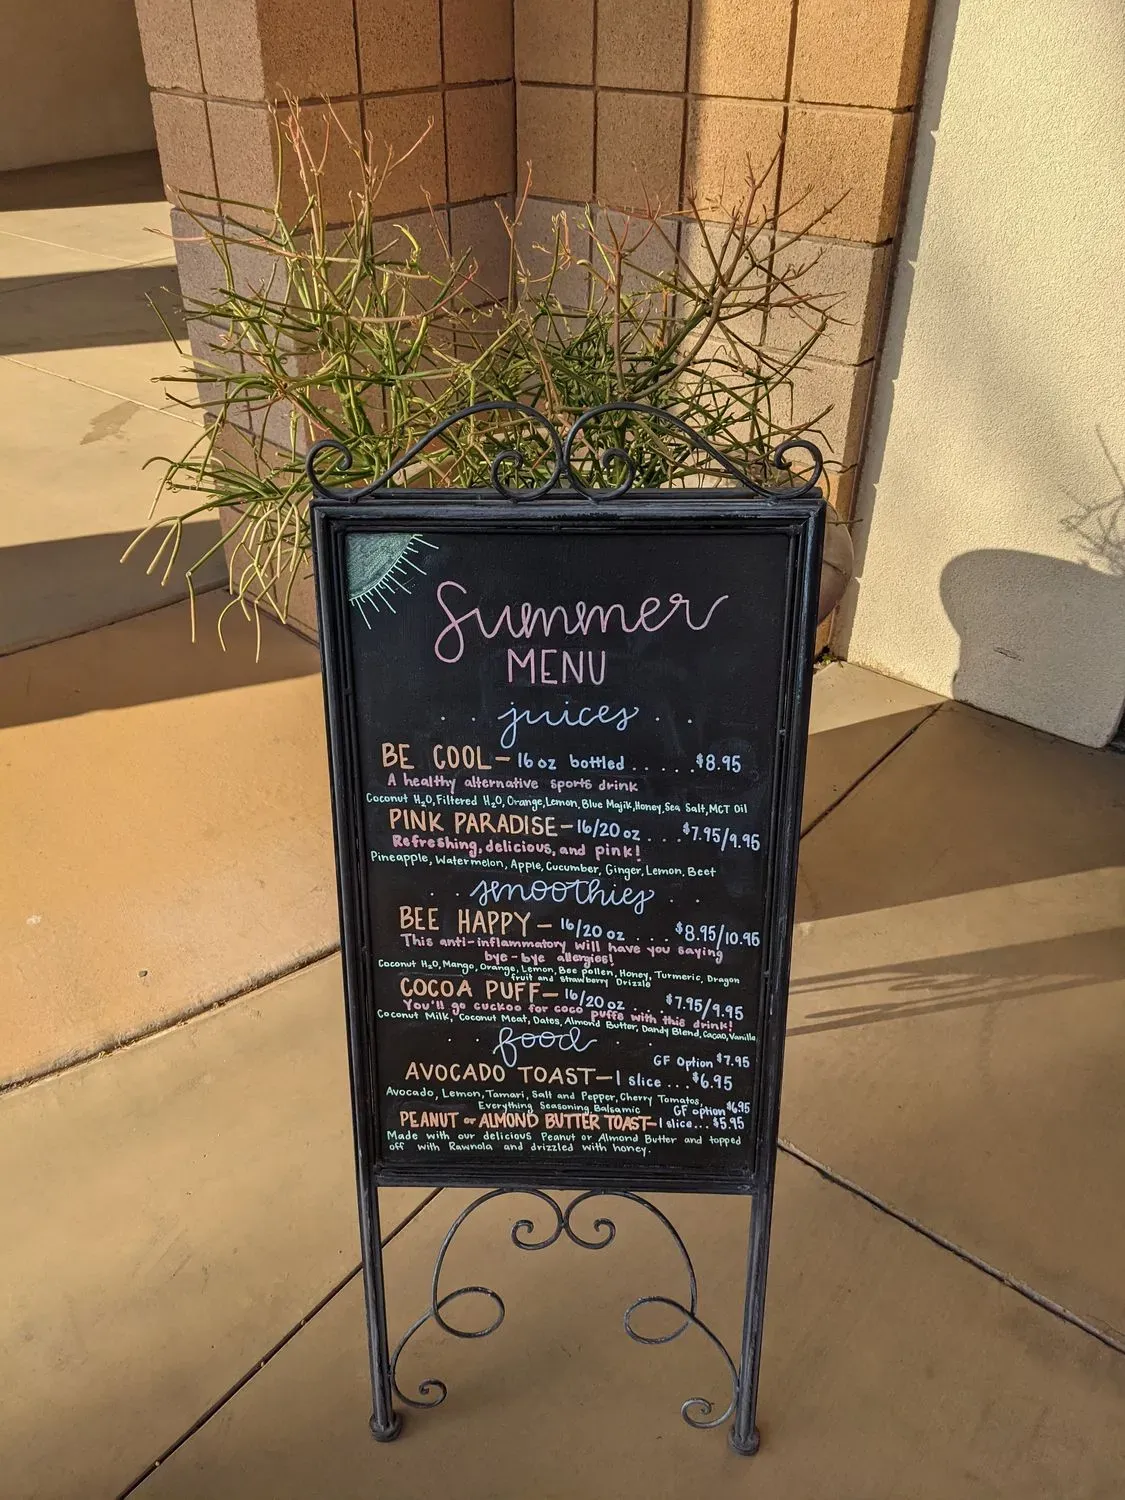 Summer
MENU
. . juices . .
BE COOL - 16 oz bottled ..... $8.95
A healthy alternative sports drink
Coconut H₂O, Filtered H₂O, Orange, Lemon, Blue Majik, Honey, Sea Salt, MCT Oil
PINK PARADISE - 16/20 oz .... $7.95/9.95
Refreshing, delicious, and pink!
Pineapple, Watermelon, Apple, Cucumber, Ginger, Lemon, Beet
. . smoothies . .
BEE HAPPY - 16/20 oz .... $8.95/10.95
This anti-inflammatory will have you saying
bye-bye allergies!
Coconut H₂O, Mango, Orange, Lemon, Bee pollen, Honey, Turmeric, Dragon
fruit and strawberry Drizzle
COCOA PUFF - 16/20 oz .... $7.95/9.95
You'll go cuckoo for coco puffs with this drink!
Coconut Milk, Coconut Meat, Dates, Almond Butter, Dandy Blend, Cacao, Vanilla
. . food . .
GF Option $7.95
AVOCADO TOAST - 1 slice ... $6.95
Avocado, Lemon, Tamari, Salt and Pepper, Cherry Tomatos,
Everything Seasoning, Balsamic
GF option $6.95
PEANUT or ALMOND BUTTER TOAST - 1 slice... $5.95
Made with our delicious Peanut or Almond Butter and topped
off with Rawnola and drizzled with honey.